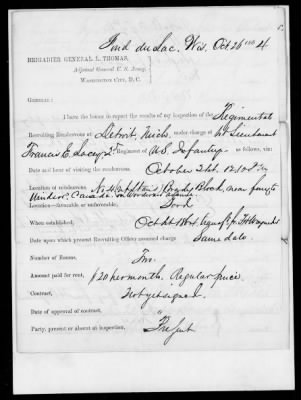 Fond du Lac, Wis. Oct 26 1864
BRIGADIER GENERAL L. THOMAS,
Adjutant General U. S. Army,
WASHINGTON CITY, D. C.
GENERAL:
I have the honor to report the results of my inspection of the Regimental
Recruiting Rendezvous at Detroit Mich. under charge of 1st Lieutenant
Francis E. Lacey 2d Regiment of U S Infantry as follows, viz:
Date and hour of visiting the rendezvous October 21st.
Location of rendezvous, Block, near ferry to
Windsor, Canada
Location—favorable or unfavorable, Good
When established, Oct
Date upon which present Recruiting Officer assumed charge Same date
Number of Rooms, Two.
Amount paid for rent, $20 per month. Regular price
Contract, Not yet signed.
Date of approval of contract,
Party, present or absent at inspection, Present